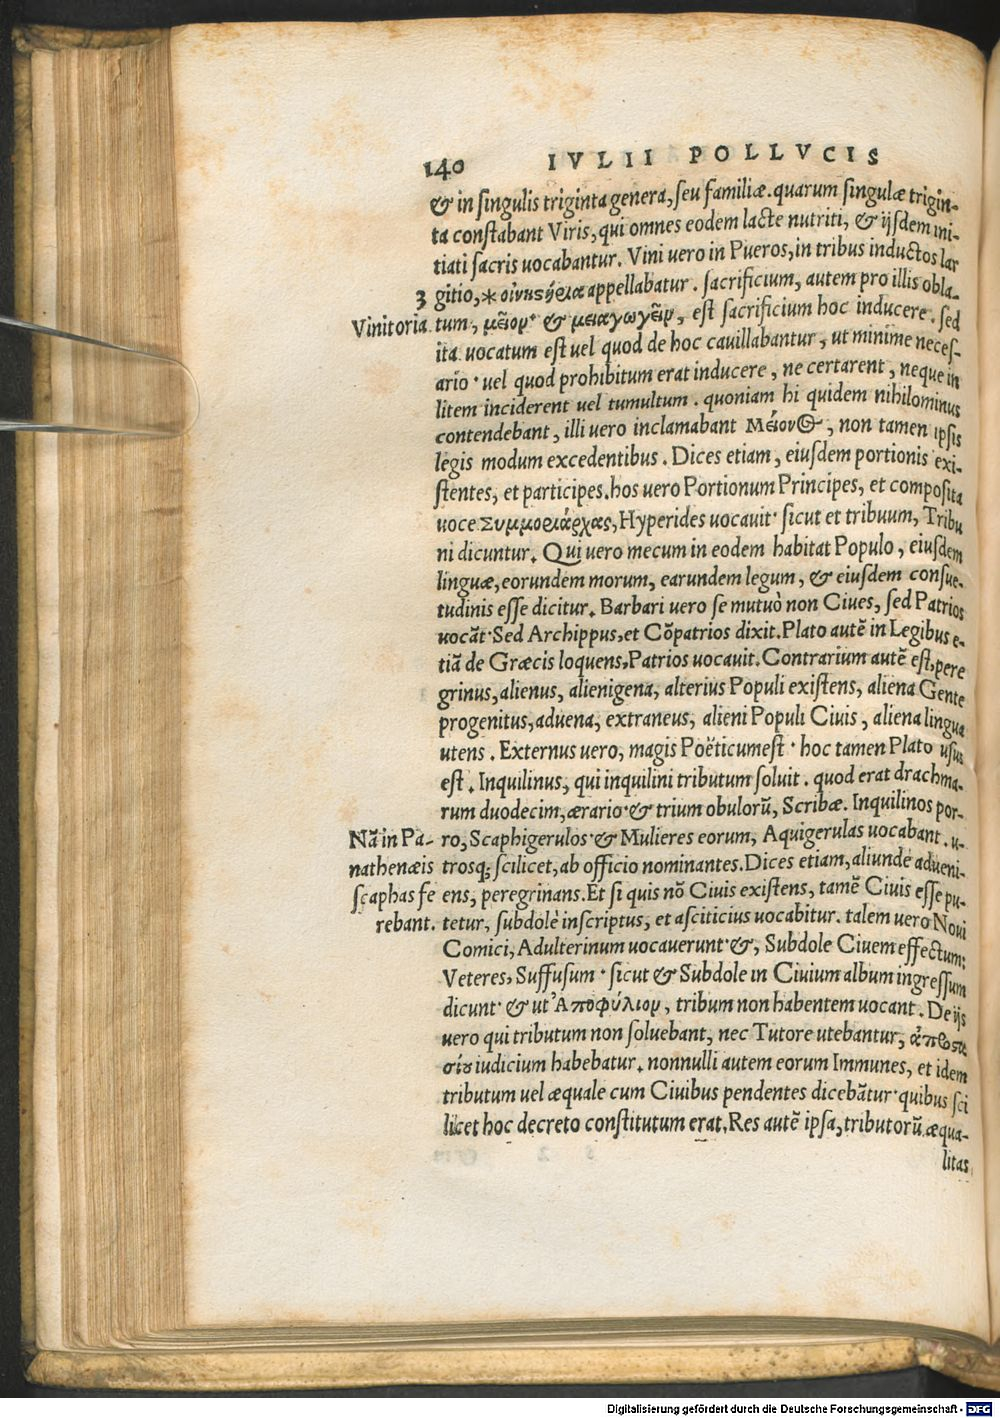 140 IVLII POLLVCIS
& in singulis triginta genera, seu familiæ. quarum singulæ trigin-
ta constabant Viris, qui omnes eodem lacte nutriti, & ijsdem ini-
tiati sacris uocabantur. Vini uero in Pueros, in tribus inductos lar
3 gitio, * οἰνιστήρια appellabatur. sacrificium, autem pro illis obla-
Vinitoria. tum, μεῖον· & μειαγωγεῖν, est sacrificium hoc inducere. sed
ita uocatum est uel quod de hoc cauillabantur, ut minime neces-
ario · uel quod prohibitum erat inducere, ne certarent, neque in
litem inciderent uel tumultum. quoniam hi quidem nihilominus
contendebant, illi uero inclamabant Μείονος, non tamen ipsis
legis modum excedentibus. Dices etiam, eiusdem portionis exi-
stentes, et participes. hos uero Portionum Principes, et composita
uoce Συμμοριάρχας, Hyperides uocauit· sicut et tribuum, Tribu
ni dicuntur. Qui uero mecum in eodem habitat Populo, eiusdem
linguæ, eorundem morum, earundem legum, & eiusdem consue-
tudinis esse dicitur. Barbari uero se mutuò non Ciues, sed Patrios
uocāt· Sed Archippus, et Cōpatrios dixit. Plato autē in Legibus e-
tiā de Græcis loquens, Patrios uocauit. Contrarium autē est, pere
grinus, alienus, alienigena, alterius Populi existens, aliena Gente
progenitus, aduena, extraneus, alieni Populi Ciuis, aliena lingua
utens. Externus uero, magis Poëticumest · hoc tamen Plato usus
est. Inquilinus, qui inquilini tributum soluit. quod erat drachma-
rum duodecim, ærario· & trium obulorū, Scribæ. Inquilinos por-
Nā in Pa- ro, Scaphigerulos · & Mulieres eorum, Aquigerulas uocabant. u-
nathenæis trosq; scilicet, ab officio nominantes. Dices etiam, aliunde adueni-
scaphas fe ens, peregrinans. Et si quis nō Ciuis existens, tamē Ciuis esse pu-
rebant. tetur, subdolè inscriptus, et asciticius uocabitur. talem uero Noui
Comici, Adulterinum uocauerunt· &, Subdole Ciuem effectum:
Veteres, Suffusum · sicut & Subdole in Ciuium album ingressum
dicunt· & ut Ἀποφύλιον, tribum non habentem uocant. De ijs
uero qui tributum non soluebant, nec Tutore utebantur, ἀπροστα
σίου iudicium habebatur. nonnulli autem eorum Immunes, et idem
tributum uel æquale cum Ciuibus pendentes dicebātur· quibus sci
licet hoc decreto constitutum erat. Res autē ipsa, tributorū æqua-
litas
Digitalisierung gefördert durch die Deutsche Forschungsgemeinschaft - DFG